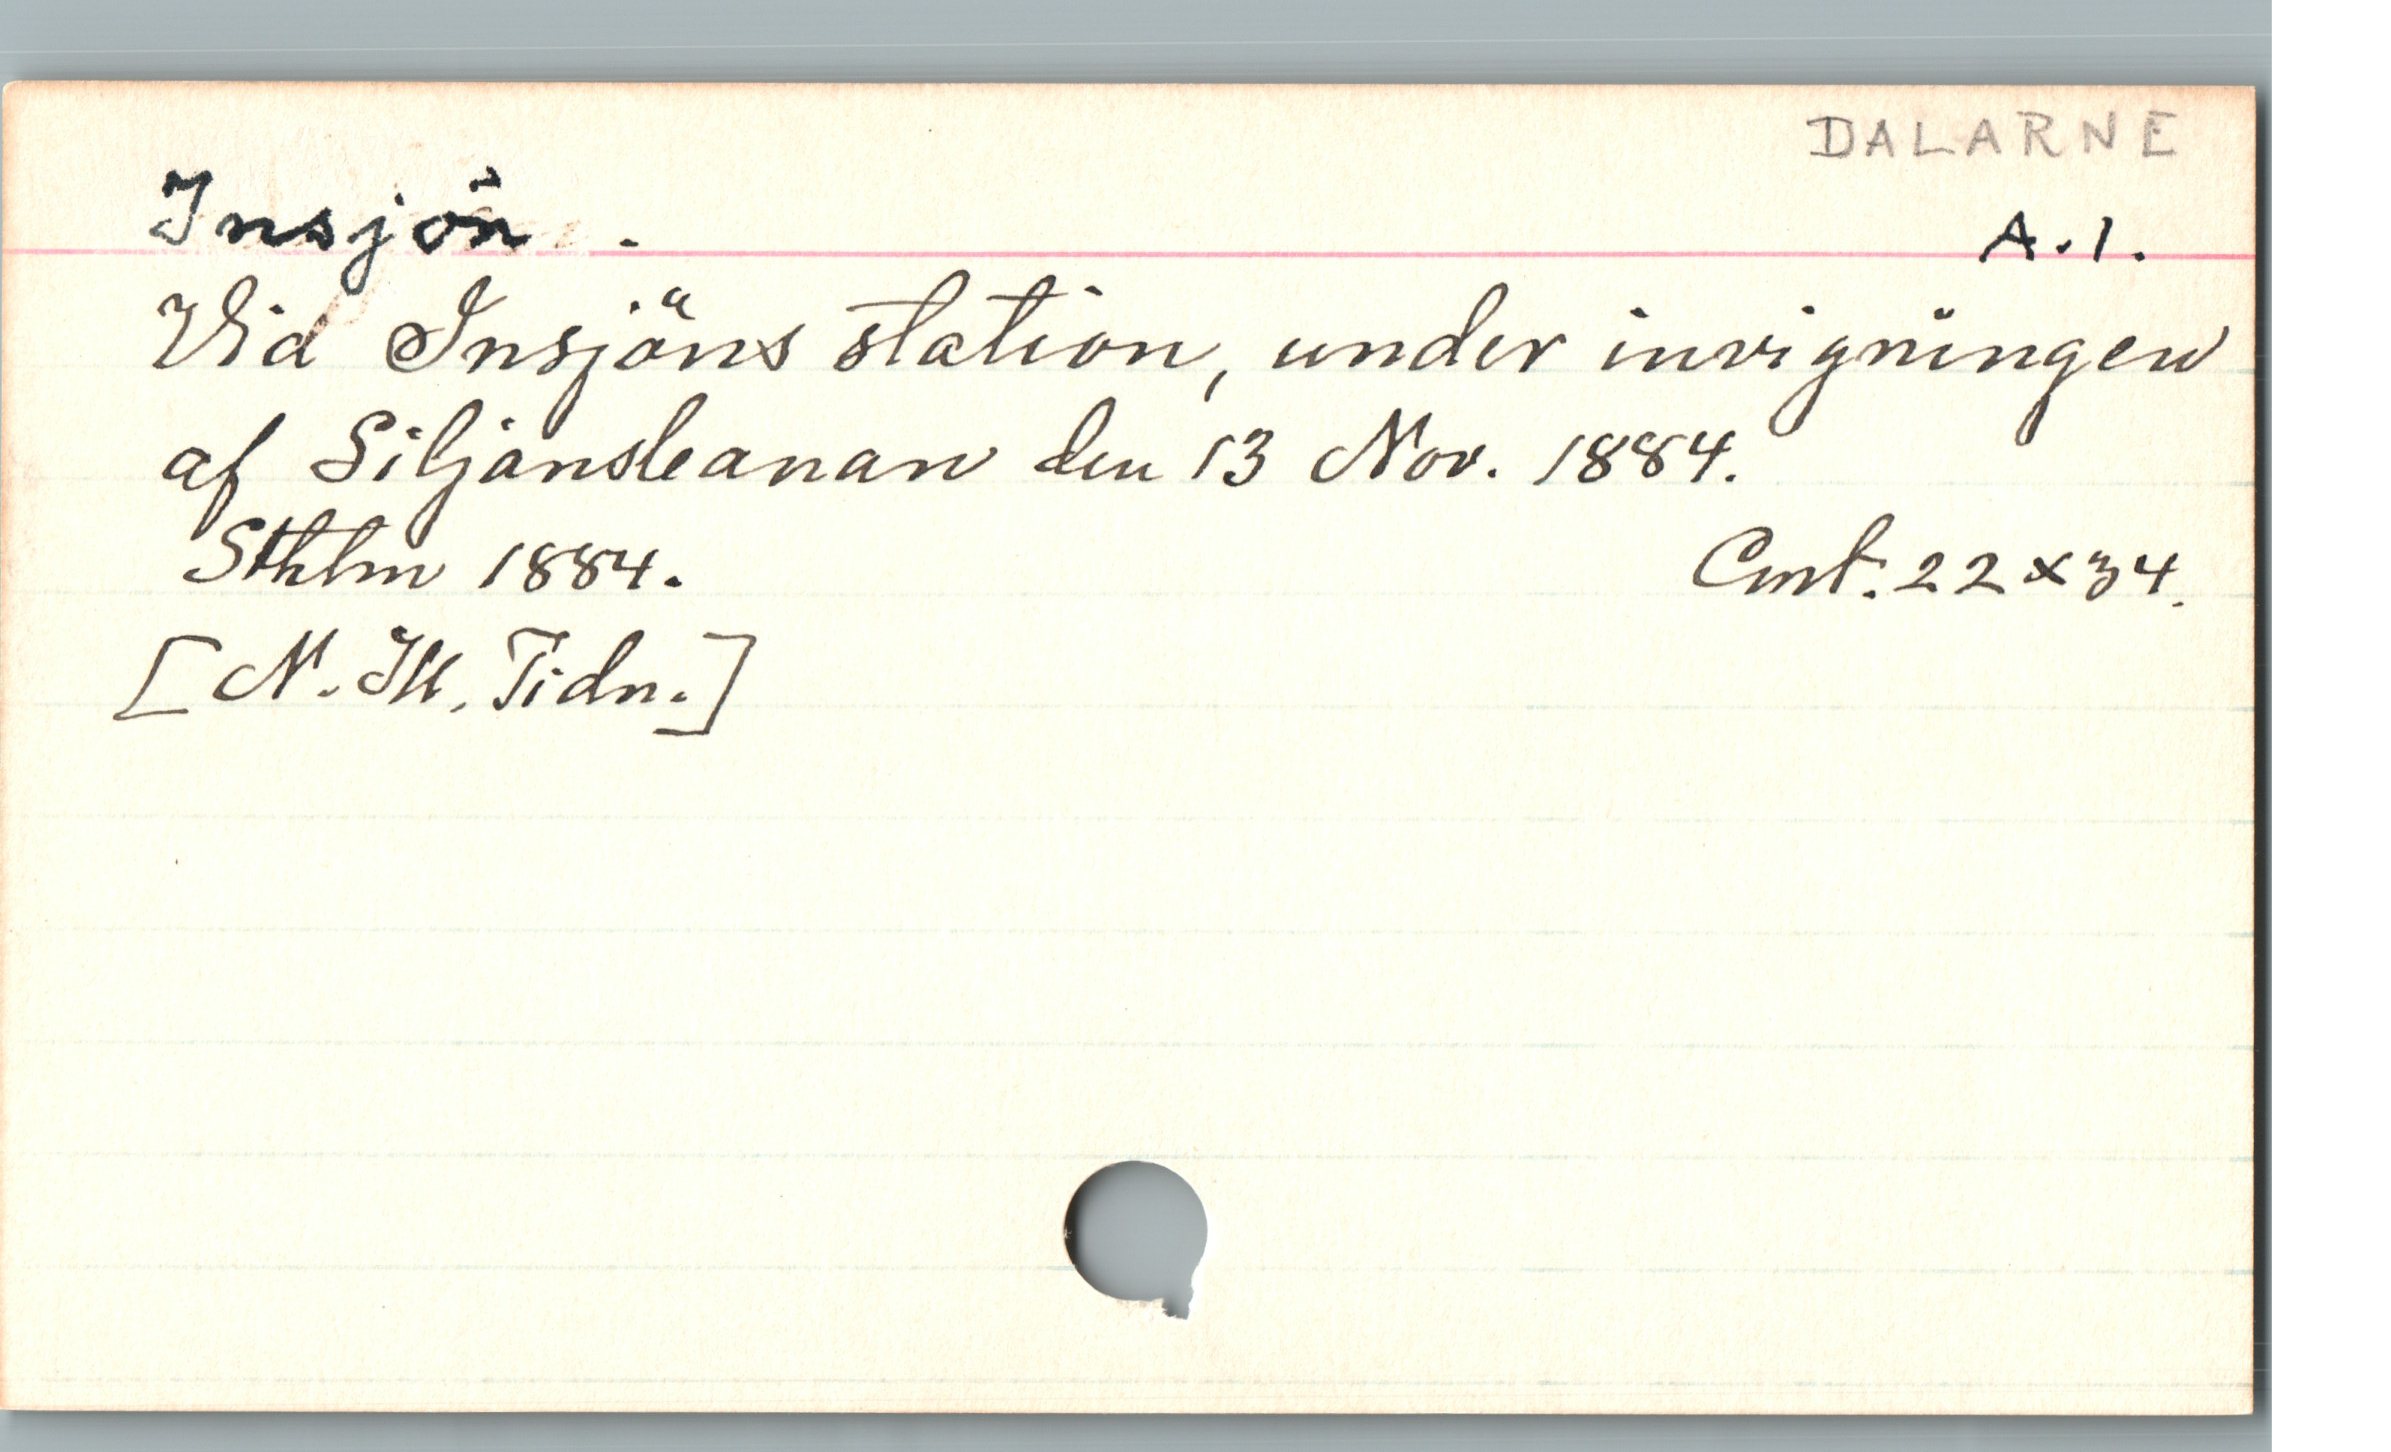 DALARNE
Insjön.
A.1.
Vid Insjöns station, under invigningen
af Siljansbanan den 13 Nov. 1884.
Sthlm 1884.
Cmt. 22 x 34.
[N. Ill. Tidn.]